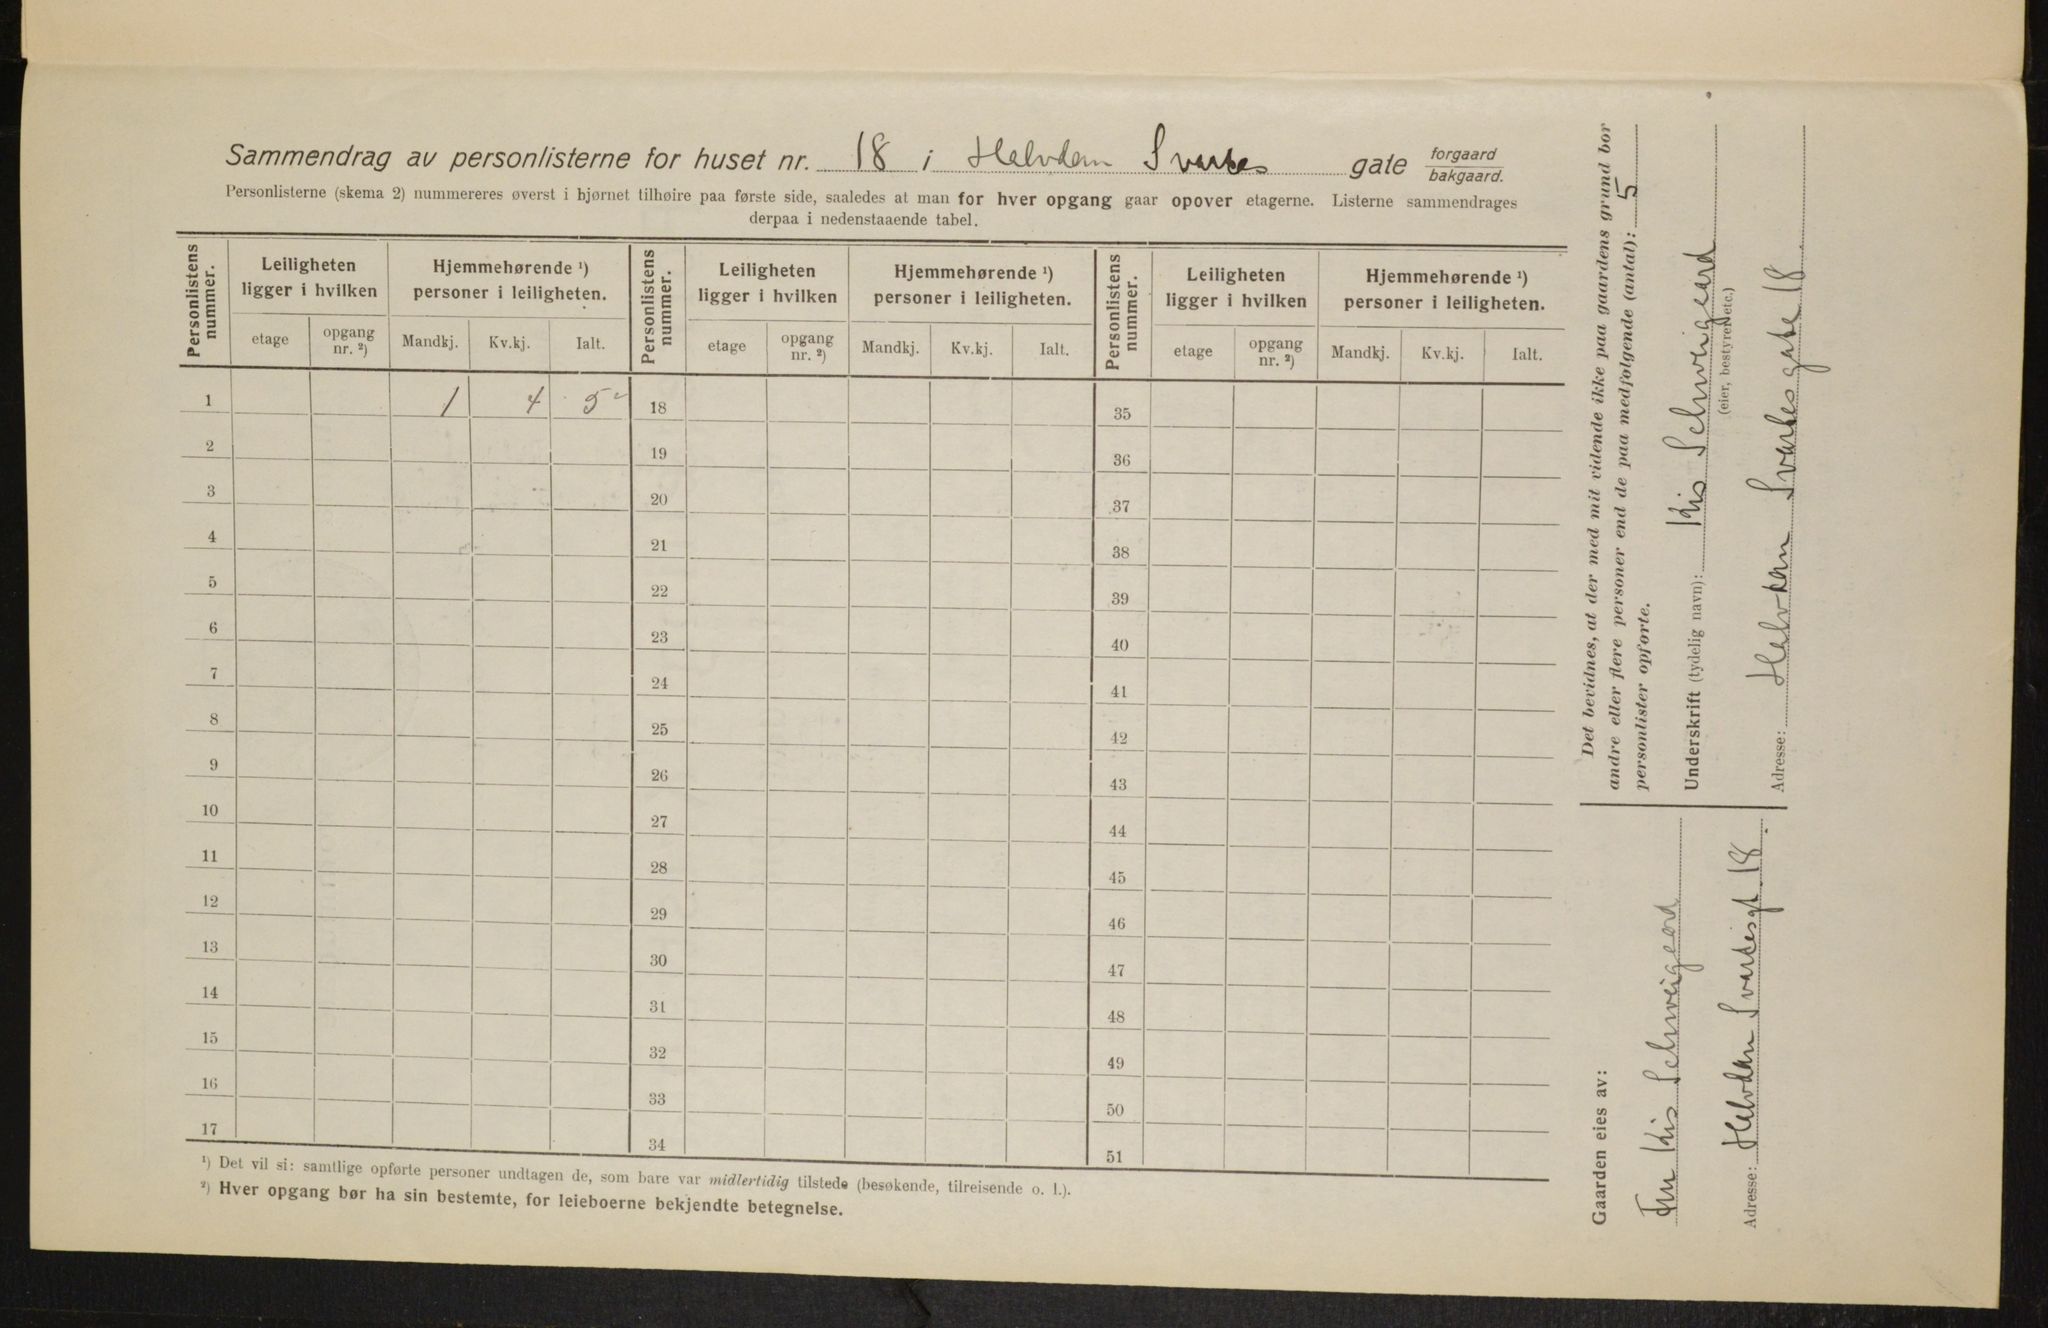 Sammendrag av personlisterne for huset nr. 18 i Halvdan Svartes gate forgaard bakgaard.
Personlisterne (skema 2) nummereres øverst i hjørnet tilhøire paa første side, saaledes at man for hver opgang gaar opover etagerne. Listerne sammendrages
derpaa i nedenstaaende tabel.
Personlistens nummer. Leiligheten ligger i hvilken Hjemmehørende ¹) personer i leiligheten. Personlistens nummer. Leiligheten ligger i hvilken Hjemmehørende ¹) personer i leiligheten. Personlistens nummer. Leiligheten ligger i hvilken Hjemmehørende ¹) personer i leiligheten.
etage opgang nr. ²) Mandkj. Kv.kj. Ialt. etage opgang nr. ²) Mandkj. Kv.kj. Ialt. etage opgang nr. ²) Mandkj. Kv.kj. Ialt.
1 1 4 5 18 35
2 19 36
3 20 37
4 21 38
5 22 39
6 23 40
7 24 41
8 25 42
9 26 43
10 27 44
11 28 45
12 29 46
13 30 47
14 31 48
15 32 49
16 33 50
17 34 51
¹) Det vil si: samtlige opførte personer undtagen de, som bare var midlertidig tilstede (besøkende, tilreisende o. l.).
²) Hver opgang bør ha sin bestemte, for leieboerne bekjendte betegnelse.
Det bevidnes, at der med mit vidende ikke paa gaardens grund bor
andre eller flere personer end de paa medfølgende (antal): 5
personlister opførte.
Underskrift (tydelig navn): Kis Schweigaard
(eier, bestyrer etc.)
Adresse: Halvdan Svartesgate 18
Gaarden eies av:
Fru Kis Schweigaard
Adresse: Halvdan Svartesgt 18.